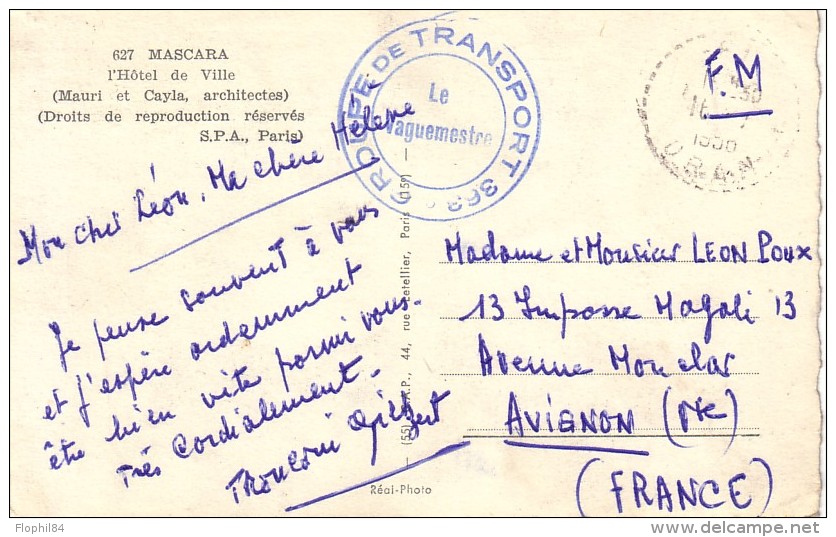 627 MASCARA
l'Hôtel de Ville
(Mauri et Cayla, architectes)
(Droits de reproduction réservés
S.P.A., Paris)
GROUPE DE TRANSPORT 363
Le
Vaguemestre
F.M
ORAN
Mon cher Léon, Ma chère Hélène
Je pense souvent à vous
et j'espère ardemment
être bien vite parmi vous.
Très Cordialement.
Madame et Monsieur LEON POUX
13 Impasse Magali 13
Avenue Monclar
AVIGNON
(FRANCE)
44, rue Letellier, Paris (15e)
Réal-Photo
Flophil84